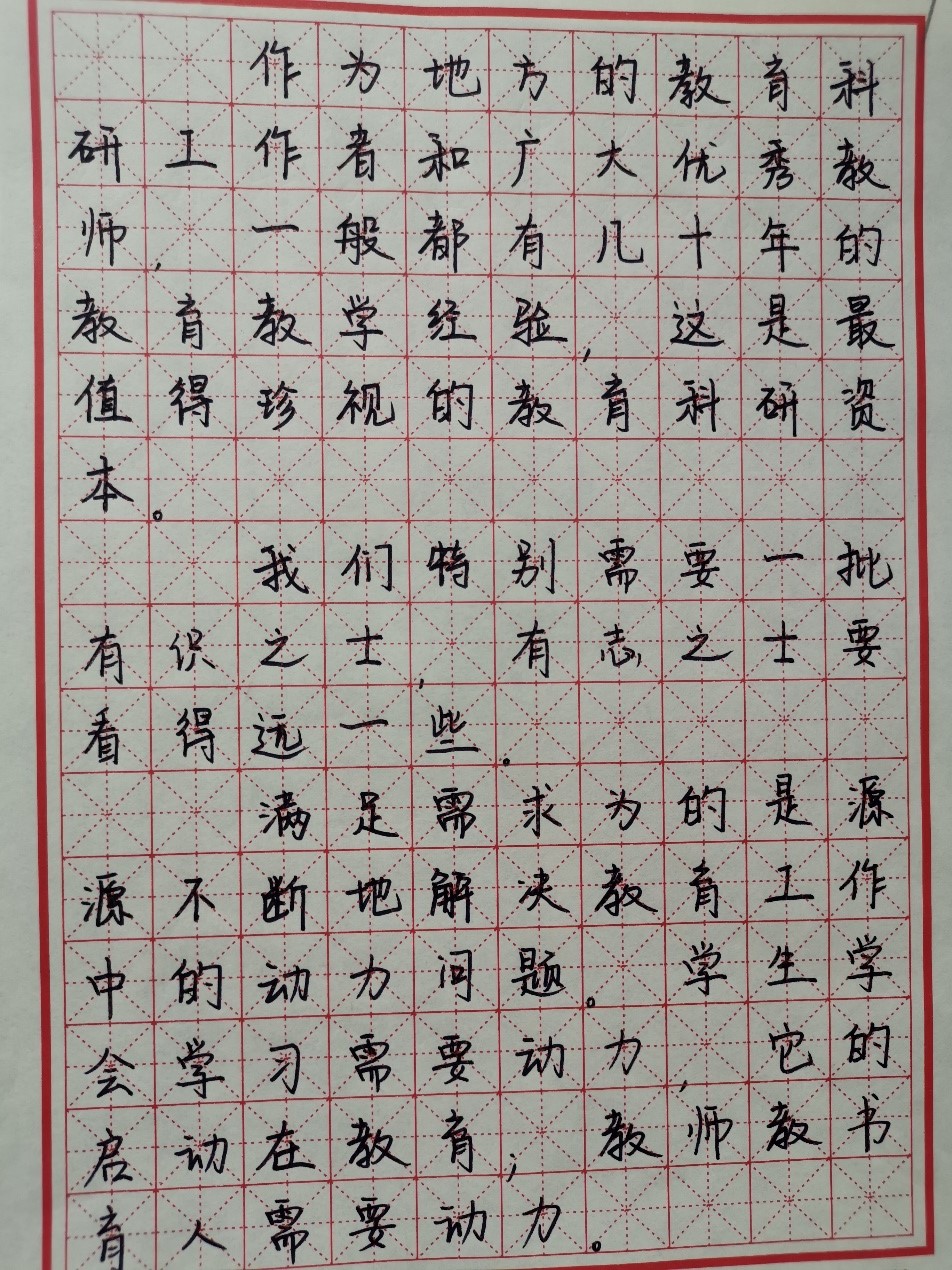 作为地方的教育科
研工作者和广大优秀教
师，一般都有几十年的
教育教学经验，这是最
值得珍视的教育科研资
本。
我们特别需要一批
有识之士，有志之士要
看得远一些。
满足需求为的是源
源不断地解决教育工作
中的动力问题。学生学
会学习需要动力，它的
启动在教育；教师教书
育人需要动力。